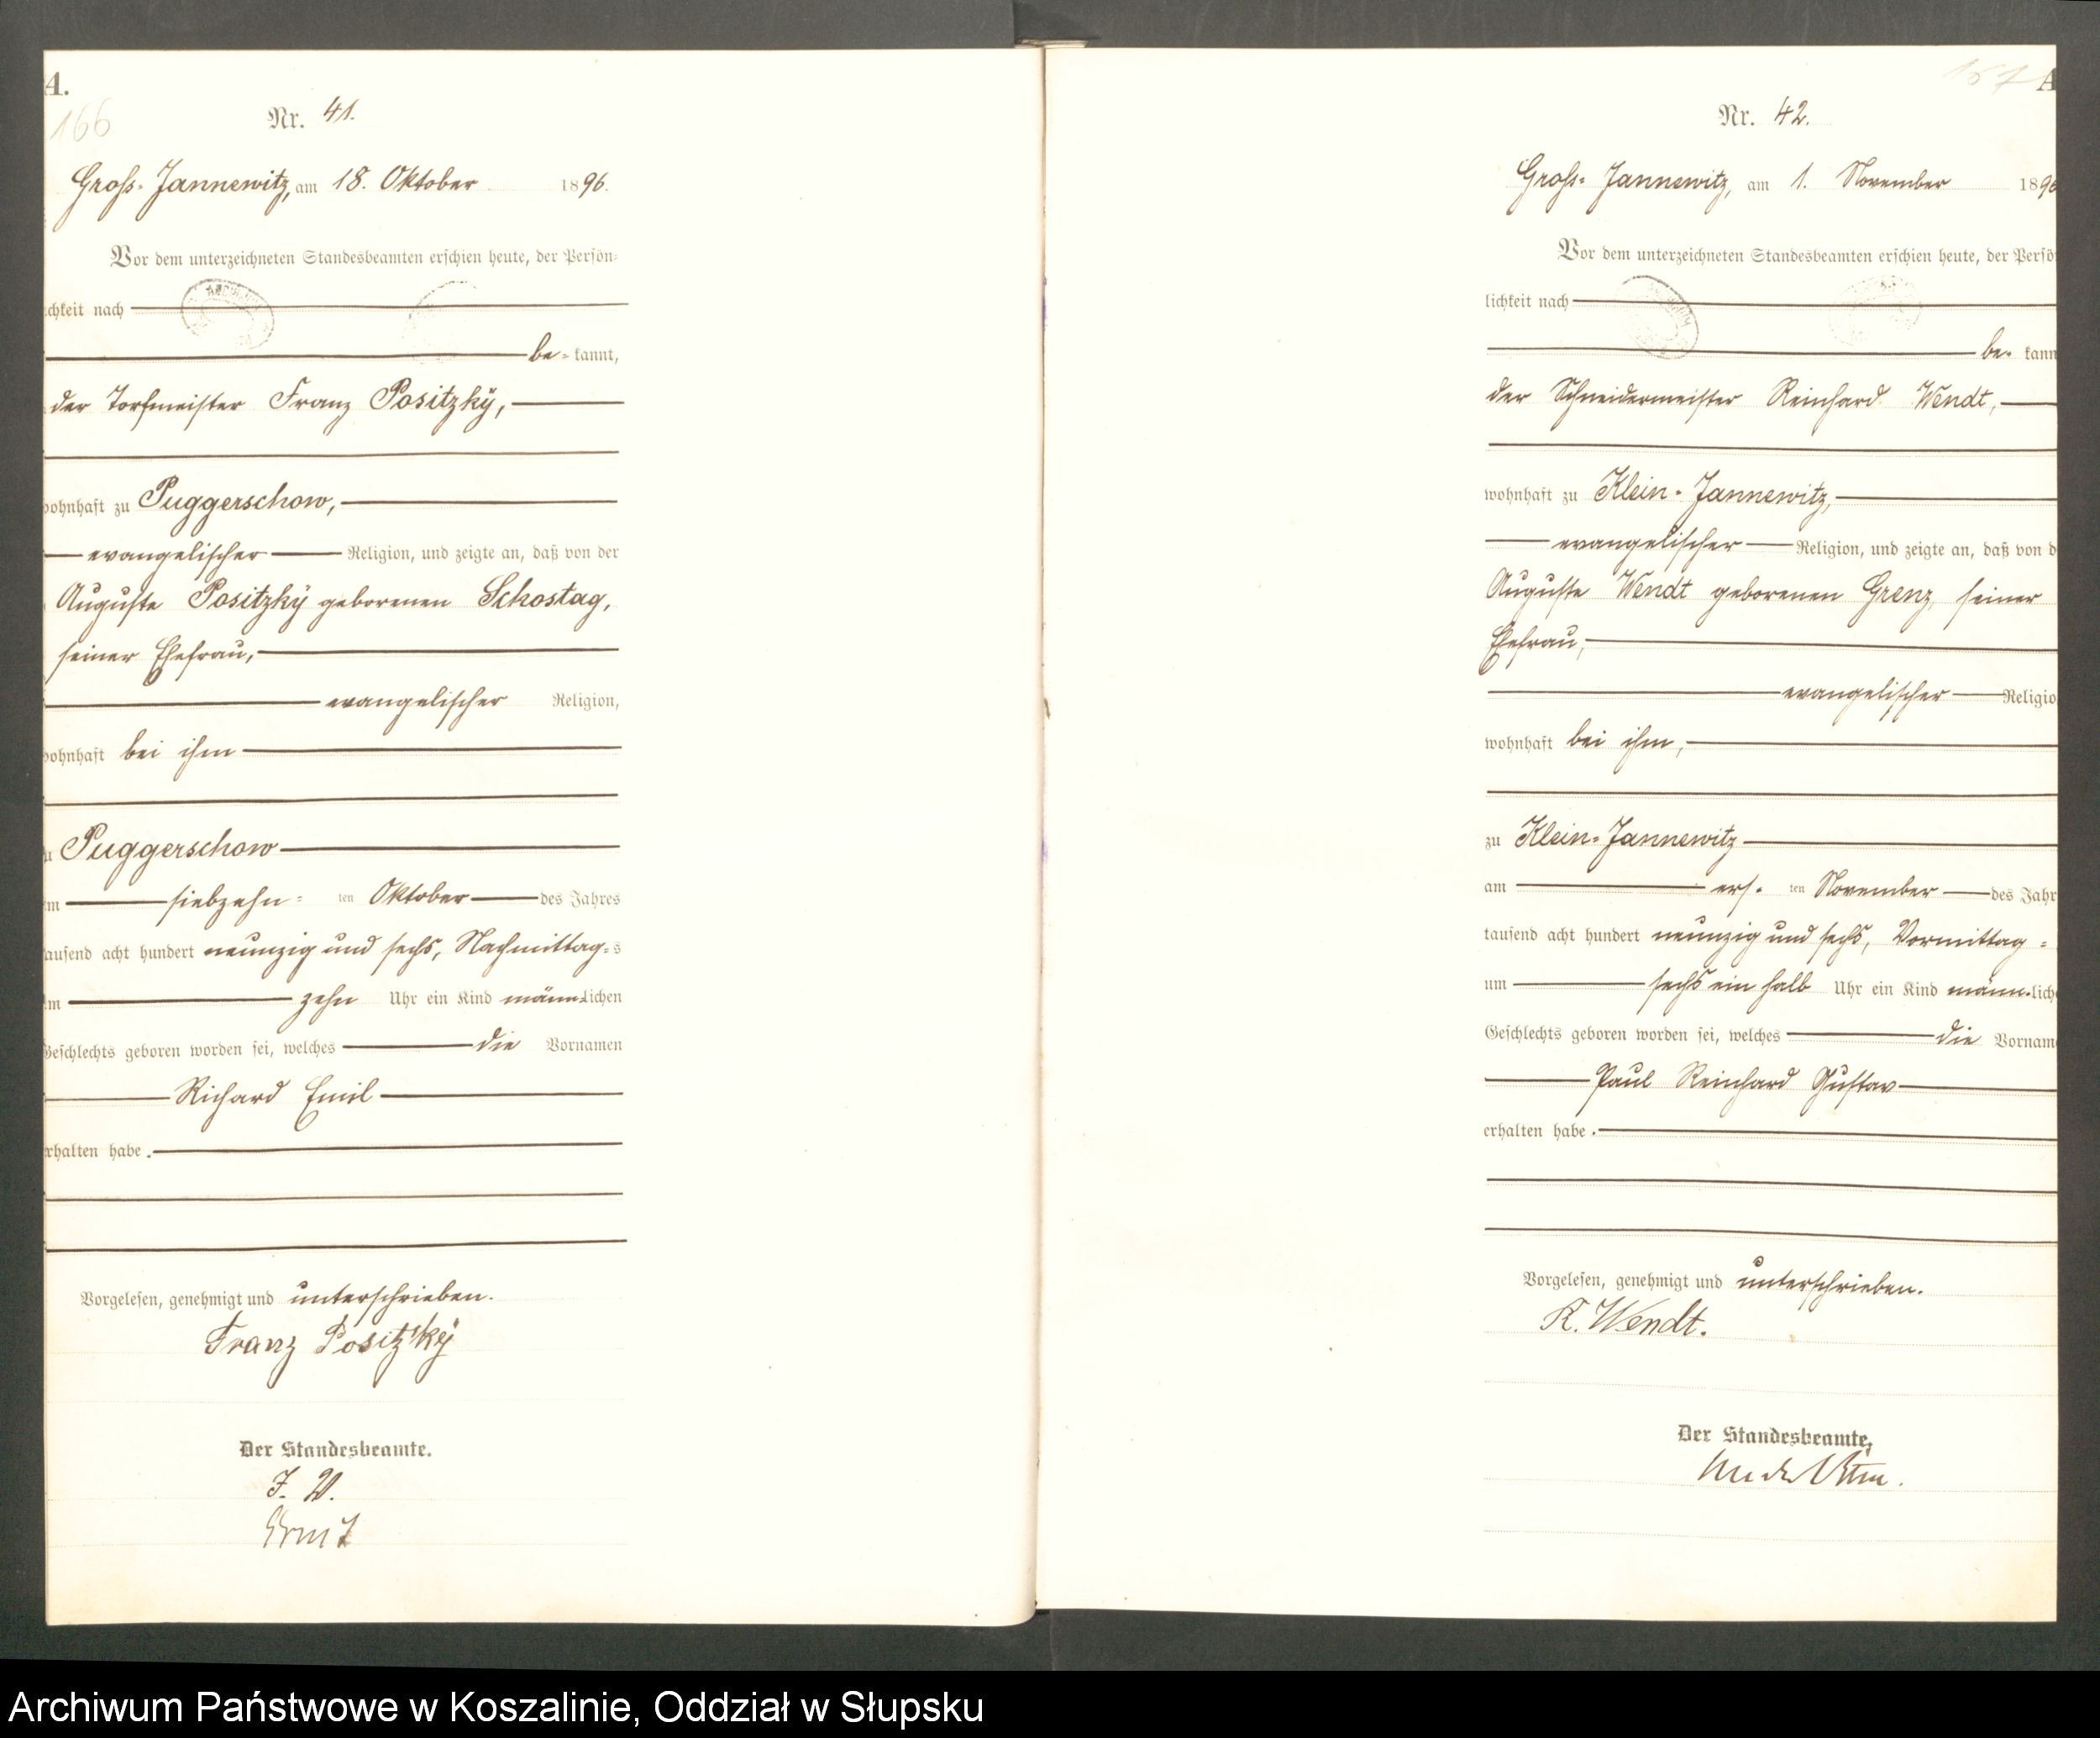 A.
166
Nr. 41.
Groß-Jannewitz, am 18. Oktober 1896.
Vor dem unterzeichneten Standesbeamten erschien heute, der Persön-
chkeit nach
be- kannt,
der Torfmeister Franz Positzky,
wohnhaft zu Puggerschow,
evangelischer Religion, und zeigte an, daß von der
Auguste Positzky geborenen Schostag,
seiner Ehefrau,
evangelischer Religion,
wohnhaft bei ihm
zu Puggerschow
am siebzehn- ten Oktober des Jahres
tausend acht hundert neunzig und sechs, Nachmittag-s
um zehn Uhr ein Kind männlichen
Geschlechts geboren worden sei, welches die Vornamen
Richard Emil
erhalten habe.
Vorgelesen, genehmigt und unterschrieben.
Franz Positzky
Der Standesbeamte.
J. V.
167 A
Nr. 42.
Groß-Jannewitz, am 1. November 1896
Vor dem unterzeichneten Standesbeamten erschien heute, der Persö
lichkeit nach
be- kann
der Schneidermeister Reinhard Wendt,
wohnhaft zu Klein-Jannewitz,
evangelischer Religion, und zeigte an, daß von d
Auguste Wendt geborenen Grenz, seiner
Ehefrau,
evangelischer Religio
wohnhaft bei ihm,
zu Klein-Jannewitz
am ers- ten November des Jahr
tausend acht hundert neunzig und sechs, Vormittag-
um sechs ein halb Uhr ein Kind männ-lich
Geschlechts geboren worden sei, welches die Vornam
Paul Reinhard Gustav
erhalten habe.
Vorgelesen, genehmigt und unterschrieben.
R. Wendt.
Der Standesbeamte,
Archiwum Państwowe w Koszalinie, Oddział w Słupsku